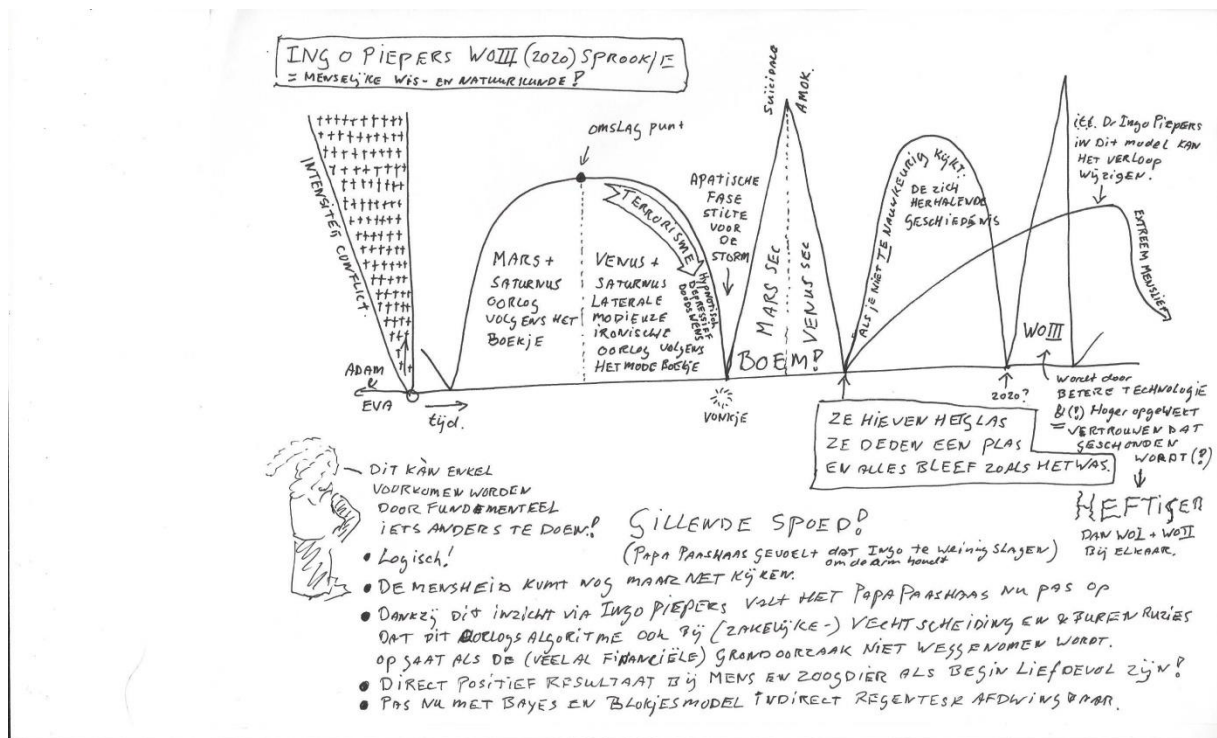 INGO PIEPERS WOIII (2020) SPROOKJE
= MENSELIJKE WIS- EN NATUURKUNDE!
INTENSITEIT CONFLICT
ADAM
&
EVA
tijd.
OMSLAG PUNT
MARS +
SATURNUS
OORLOG
VOLGENS HET
BOEKJE
VENUS +
SATURNUS
LATERALE
MODIEUZE
IRONISCHE
OORLOG VOLGENS
HET MODE BOEKJE
TERRORISME
HYPNOTISCH
DEPRESSIEF
DOODSWENS
APATISCHE
FASE
STILTE
VOOR
DE
STORM
VONKJE
SUÏCIDALE
AMOK.
MARS SEC
VENUS SEC
BOEM!
ALS JE NIET TE NAUWKEURIG KIJKT:
DE ZICH
HERHALENDE
GESCHIEDENIS
i.t.t. Dr Ingo Piepers
IN DIT MODEL KAN
HET VERLOOP
WIJZIGEN.
EXTREEM MENSLIEF
WOIII
2020?
WORDT DOOR
BETERE TECHNOLOGIE
& (!) Hoger opgewekt
= VERTROUWEN DAT
GESCHONDEN
WORDT (!)
HEFTIGER
DAN WOI + WOII
BIJ ELKAAR.
ZE HIEVEN HET GLAS
ZE DEDEN EEN PLAS
EN ALLES BLEEF ZOALS HET WAS.
DIT KÀN ENKEL
VOORKOMEN WORDEN
DOOR FUNDEMENTEEL
IETS ANDERS TE DOEN!
GILLENDE SPOED!
(PAPA PAASHAAS GEVOELT DAT INGO TE WEINIG SLAGEN)
om de arm houdt
• Logisch!
• DE MENSHEID KUMT NOG MAAR NET KIJKEN.
• DANKZIJ DIT INZICHT VIA INGO PIEPERS VALT HET PAPA PAASHAAS NU PAS OP
DAT DIT OORLOGSALGORITME OOK BIJ (ZAKELIJKE-) VECHTSCHEIDING EN & BUREN RUZIES
OP GAAT ALS DE (VEELAL FINANCIËLE) GRONDOORZAAK NIET WEGGENOMEN WORDT.
• DIRECT POSITIEF RESULTAAT BIJ MENS EN ZOOGDIER ALS BEGIN LIEFDEVOL ZIJN!
• PAS NU MET BAYES EN BLOKJESMODEL INDIRECT REGENTESK AFDWINGBAAR.